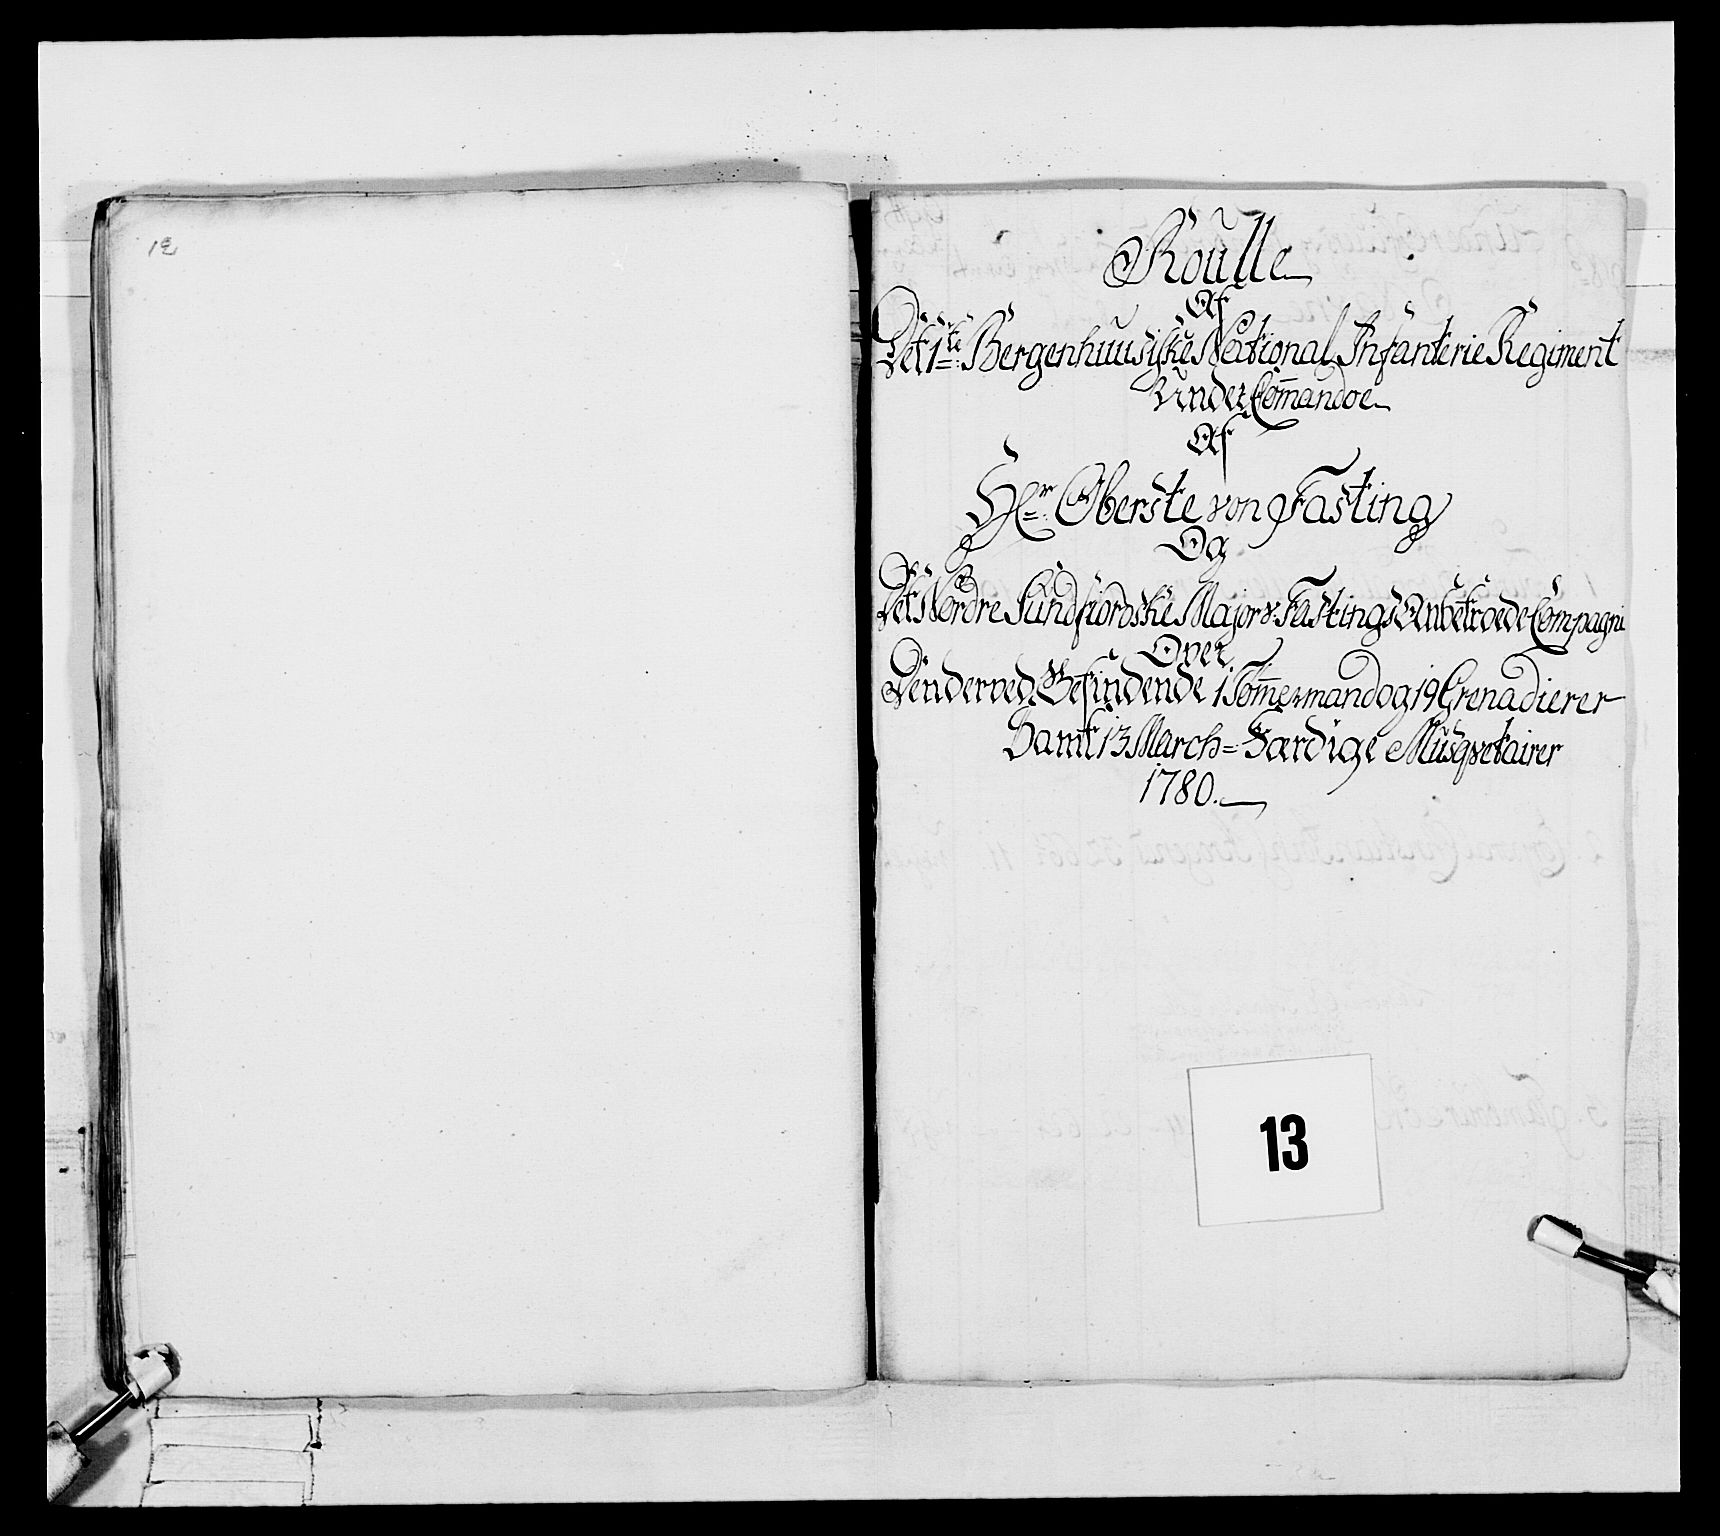 12
Roulle
Af
Det 1ste Bergenhuusiske National Infanterie Regiment
Under Com̄andoe
Af
Hr: Oberste von Fasting
Og
Det Nordre Sundfiordske Major v: Fastings Anbetroede Compagni
Over
Den derved Befindende 1 Tom̄ermand og 19 Grenadierer
Samt 13 March=Færdige Musqvetairer
1780.
13